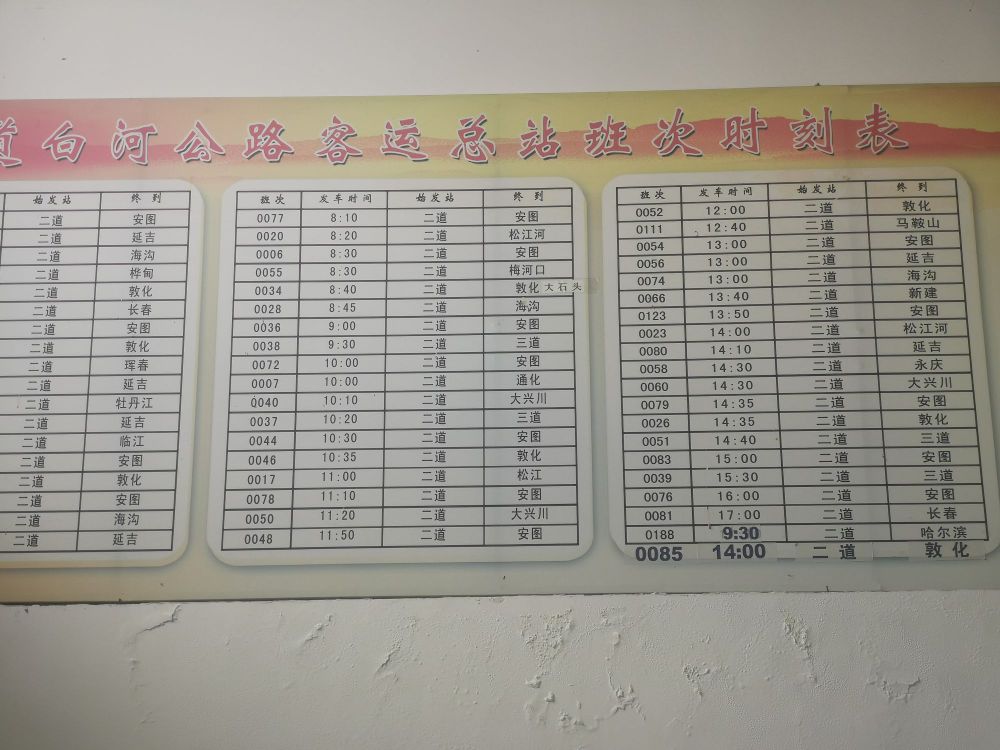 道白河公路客运总站班次时刻表
始发站 终到
二道 安图
二道 延吉
二道 海沟
二道 桦甸
二道 敦化
二道 长春
二道 安图
二道 敦化
二道 珲春
二道 延吉
二道 牡丹江
二道 延吉
二道 临江
二道 安图
二道 敦化
二道 安图
二道 海沟
二道 延吉
班次 发车时间 始发站 终到
0077 8:10 二道 安图
0020 8:20 二道 松江河
0006 8:30 二道 安图
0055 8:30 二道 梅河口
0034 8:40 二道 敦化 大石头
0028 8:45 二道 海沟
0036 9:00 二道 安图
0038 9:30 二道 三道
0072 10:00 二道 安图
0007 10:00 二道 通化
0040 10:10 二道 大兴川
0037 10:20 二道 三道
0044 10:30 二道 安图
0046 10:35 二道 敦化
0017 11:00 二道 松江
0078 11:10 二道 安图
0050 11:20 二道 大兴川
0048 11:50 二道 安图
班次 发车时间 始发站 终到
0052 12:00 二道 敦化
0111 12:40 二道 马鞍山
0054 13:00 二道 安图
0056 13:00 二道 延吉
0074 13:00 二道 海沟
0066 13:40 二道 新建
0123 13:50 二道 安图
0023 14:00 二道 松江河
0080 14:10 二道 延吉
0058 14:30 二道 永庆
0060 14:30 二道 大兴川
0079 14:35 二道 安图
0026 14:35 二道 敦化
0051 14:40 二道 三道
0083 15:00 二道 安图
0039 15:30 二道 三道
0076 16:00 二道 安图
0081 17:00 二道 长春
0188 9:30 二道 哈尔滨
0085 14:00 二道 敦化